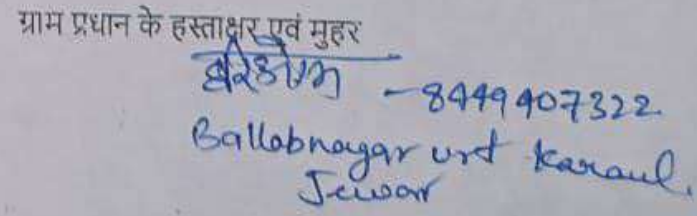 ग्राम प्रधान के हस्ताक्षर एवं मुहर
हरिओम - 8449407322
Ballabnagar urf Karaul,
Jewar